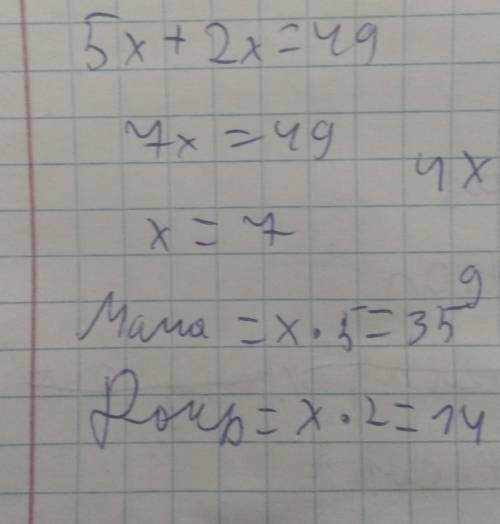 5x + 2x = 49
7x = 49
4x
x = 7
9
Мама = x · 5 = 35
Дочь = x · 2 = 14